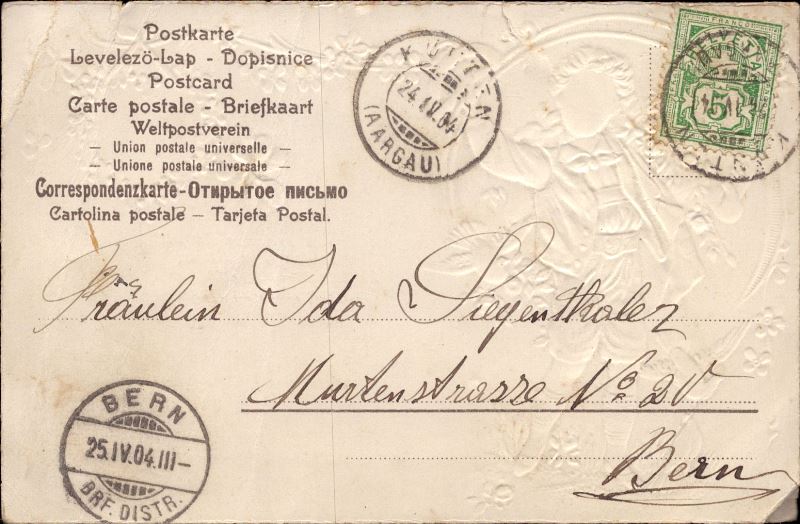 Postkarte
Levelezö-Lap - Dopisnice
Postcard
Carte postale - Briefkaart
Weltpostverein
— Union postale universelle —
— Unione postale universale —
Correspondenzkarte - Открытое письмо
Cartolina postale — Tarjeta Postal.
KÜTTIGEN
24.IV.04
(AARGAU)
HELVETIA
FRANCO
5
Fräulein Ida Siegenthaler
Murtenstrasse No 20
Bern
BERN
25.IV.04.III-
BRF. DISTR.